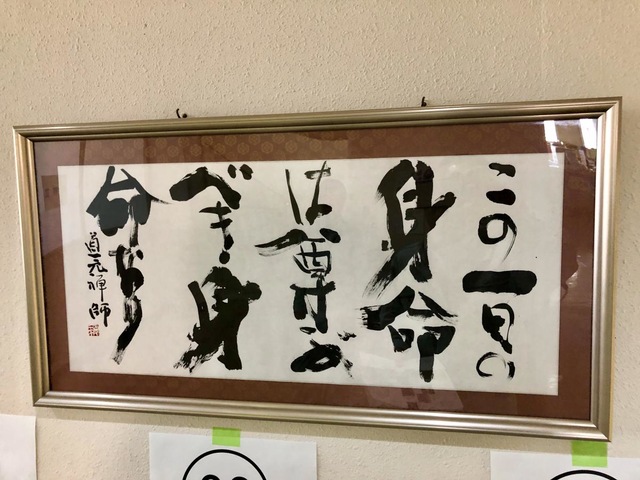 この一日の
身命
は尊ぶ
べき身
命なり
道元禅師